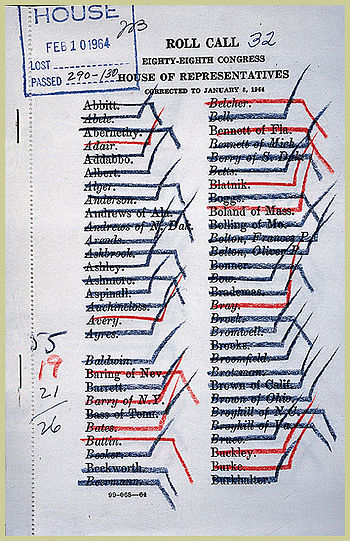 HOUSE
FEB 10 1964
LOST
PASSED 290-130
ROLL CALL 32
EIGHTY-EIGHTH CONGRESS
HOUSE OF REPRESENTATIVES
CORRECTED TO JANUARY 8, 1964
Abbitt.
Abele.
Abernethy.
Adair.
Addabbo.
Albert.
Alger.
Anderson.
Andrews of Ala.
Andrews of N. Dak.
Arends.
Ashbrook.
Ashley.
Ashmore.
Aspinall.
Auchincloss.
Avery.
Ayres.
Baldwin.
Baring of Nev.
Barrett.
Barry of N.Y.
Bass of Tenn.
Bates.
Battin.
Becker.
Beckworth.
Beermann.
Belcher.
Bell.
Bennett of Fla.
Bennett of Mich.
Berry of S. Dak.
Betts.
Blatnik.
Boggs.
Boland of Mass.
Bolling of Mo.
Bolton, Frances P.
Bolton, Oliver P.
Bonner.
Bow.
Brademas.
Bray.
Brock.
Bromwell.
Brooks.
Broomfield.
Brotzman.
Brown of Calif.
Brown of Ohio.
Broyhill of N.C.
Broyhill of Va.
Bruce.
Buckley.
Burke.
Burkhalter.
55
19
21
26
99-065—64